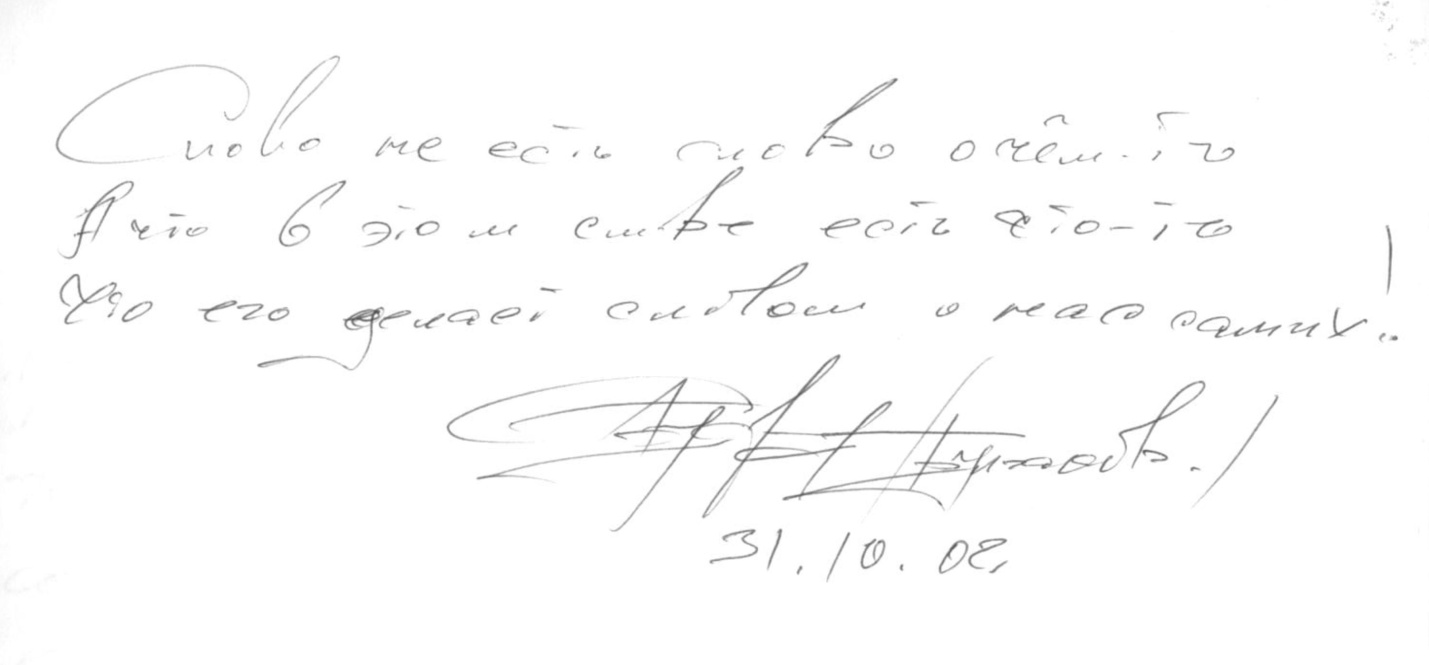 Слово не есть слово о чём-то
А что в этом слове есть что-то
Что его делает словом о нас самих..!
31.10.02.